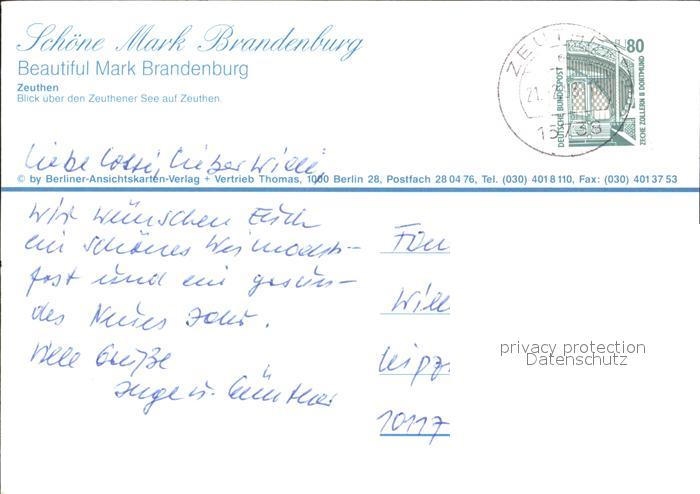 Schöne Mark Brandenburg
Beautiful Mark Brandenburg
Zeuthen
Blick über den Zeuthener See auf Zeuthen.
80
DEUTSCHE BUNDESPOST
ZECHE ZOLLERN II DORTMUND
ZEUTHEN
15738
Liebe Lotti, Lieber Willi,
© by Berliner-Ansichtskarten-Verlag + Vertrieb Thomas, 1000 Berlin 28, Postfach 28 04 76, Tel. (030) 401 8 110, Fax: (030) 401 37 53
Wir wünschen Euch
ein schönes Weihnachts-
fest und ein gesun-
des Neues Jahr.
Viele Grüße
Inge u. Günther
Fam
Will
Leipz
10117
privacy protection
Datenschutz